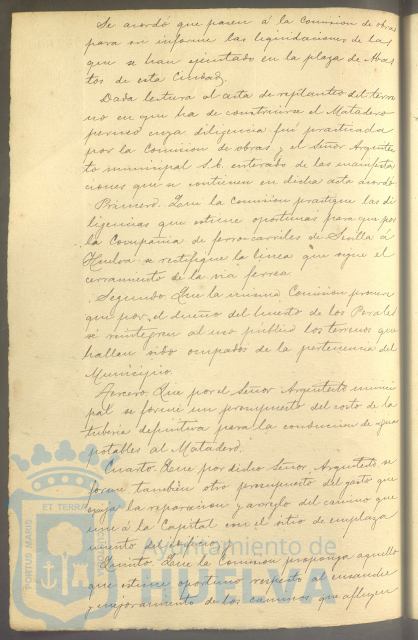 Se acordó que pasen á la Comision de obras
para su informe las liquidaciones de las
que se han ejecutado en la plaza de Abas
tos de esta Ciudad.
Dada lectura al acta de replanteo del terre
no en que ha de construirse el Matadero
cuya diligencia fué practicada
por la Comision de obras y el Señor Arquitec
to municipal S.E. enterado de las manifesta
ciones que se contienen en dicha acta acordó
Primero. Que la Comision practique las di
ligencias que estime oportunas para que por
la Compañia de ferro-carriles de Sevilla á
Huelva se rectifique la linea que sigue el
cerramiento de la via ferrea.
Segundo. Que la misma Comision procure
que por el dueño del huerto de los Perales
se reintegren al uso público los terrenos que
hallan sido ocupados de la pertenencia del
Municipio.
Tercero. Que por el Señor Arquitecto munici
pal se forme un presupuesto del costo de la
tuberia definitiva para la conducion de aguas
potables al Matadero.
Cuarto. Que por dicho Señor Arquitecto se
forme tambien otro presupuesto del gasto que
exija la reparacion y arreglo del camino que
une á la Capital con el sitio de emplaza
miento del edificio.
Quinto. Que la Comision proponga aquello
que estime oportuno respecto al ensanche
y mejoramiento de los caminos que afluyen
PORTUS MARIS
ET TERRAE
Ayuntamiento de
HUELVA